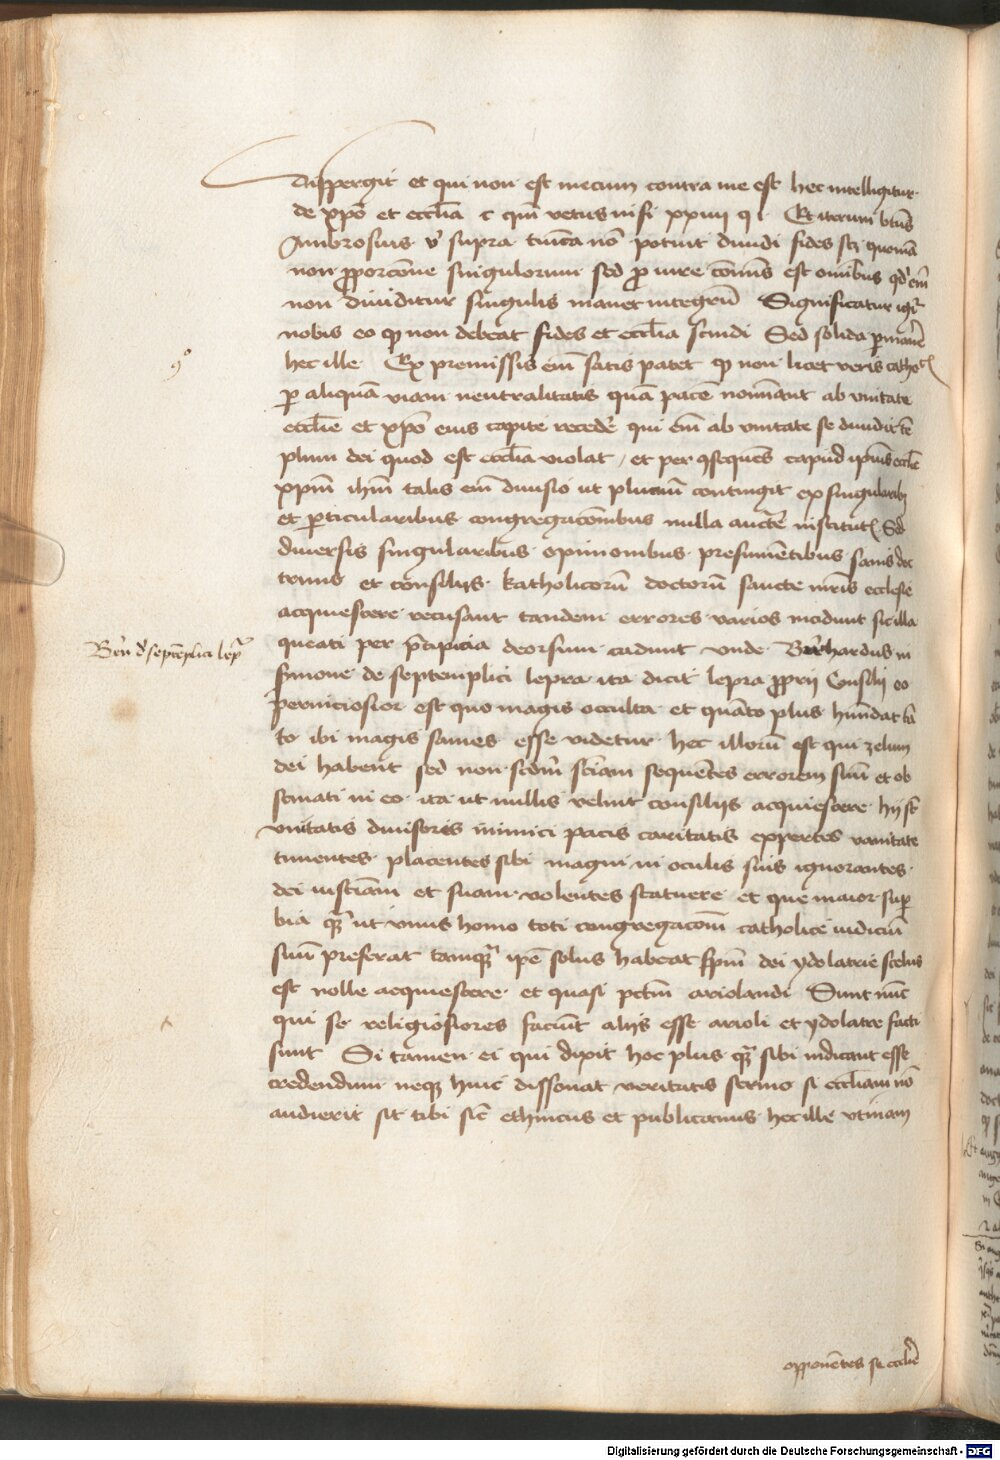 dispergit et qui non est mecum contra me est hec intelligitur
de xpō et ecclīa c qm̄ vetus nisi xxiiii q i Et iterum btūs
Ambrosius vͭ supra tunica nō potuit diuidi fides scꝫ quoniā
non ꝓporcōne singulorum sed ꝓ iure cōmūs est omībus qd' em̄
non diuiditur singulis manet integrū Significatur igit̄
nobis eo ꝙ non debeat fides et ecclīa scindi Sed solida ꝑmanē
hec ille Ex premissis em̄ satis patet ꝙ non licet veris catho
ꝑ aliquā viam neutralitatis quā pacē nominant ab vnitate
ecclīe et xpō eius capite recedē qui em̄ ab vnitate se diuidit tē
plum dei quod est ecclīa violat et per ꝯsequēs capud ipīus ecclīe
xpm̄ ihm̄ talis em̄ diuisio ut plurimū contingit ex singularibꝫ
et ꝑticularibus congregacōnibus nulla auctē institut Sed
diuersis singularibus opinionibus presumētibus sanis doc
trinis et consilijs katholicorū doctorū sancte mr̄is ecclesie
acquiescere recusant tandem errores varios incidunt sic illa
queati per p̄cipicia deorsum cadunt vnde Bernhardus in
Bern̄ d' septēplici lepra
sermone de septemplici lepra ita dicit lepra ꝓprij Consilij eo
perniciosior est quo magis occulta et quāto plus hūndat tā
to ibi magis sanies esse videtur hec illorū est qui zelum
dei habent sed non scdm̄ sciam̄ sequētes errorem suū et ob
stinati in eo ita ut nullis velint consilijs acquiescere hij st̄
vnitatis diuisores inimici pacis caritatis expertes vanitate
tumentes placentes sibi magni in oculis suis ignorantes
dei iusticiam et suam volentes statuere et que maior sup
bia qꝫ ut vnus homo toti congregacōni catholice iudiciū
suū preferat tamqꝫ ipē solus habeat spm̄ dei ydolatrie scelus
est nolle acquiescere et quasi pctm̄ ariolandi Sunt nūc
qui se religiosiores faciūt alijs esse arioli et ydolatre facti
sunt Si tamen ei qui dixit hoc plus qꝫ sibi iudicant esse
credendum neqꝫ huic dissonat veritatis sermo si eccliam nō
audierit sit tibi sic̄ ethnicus et publicanus hec ille vtinam
opponentes se ecclīe
Digitalisierung gefördert durch die Deutsche Forschungsgemeinschaft - DFG